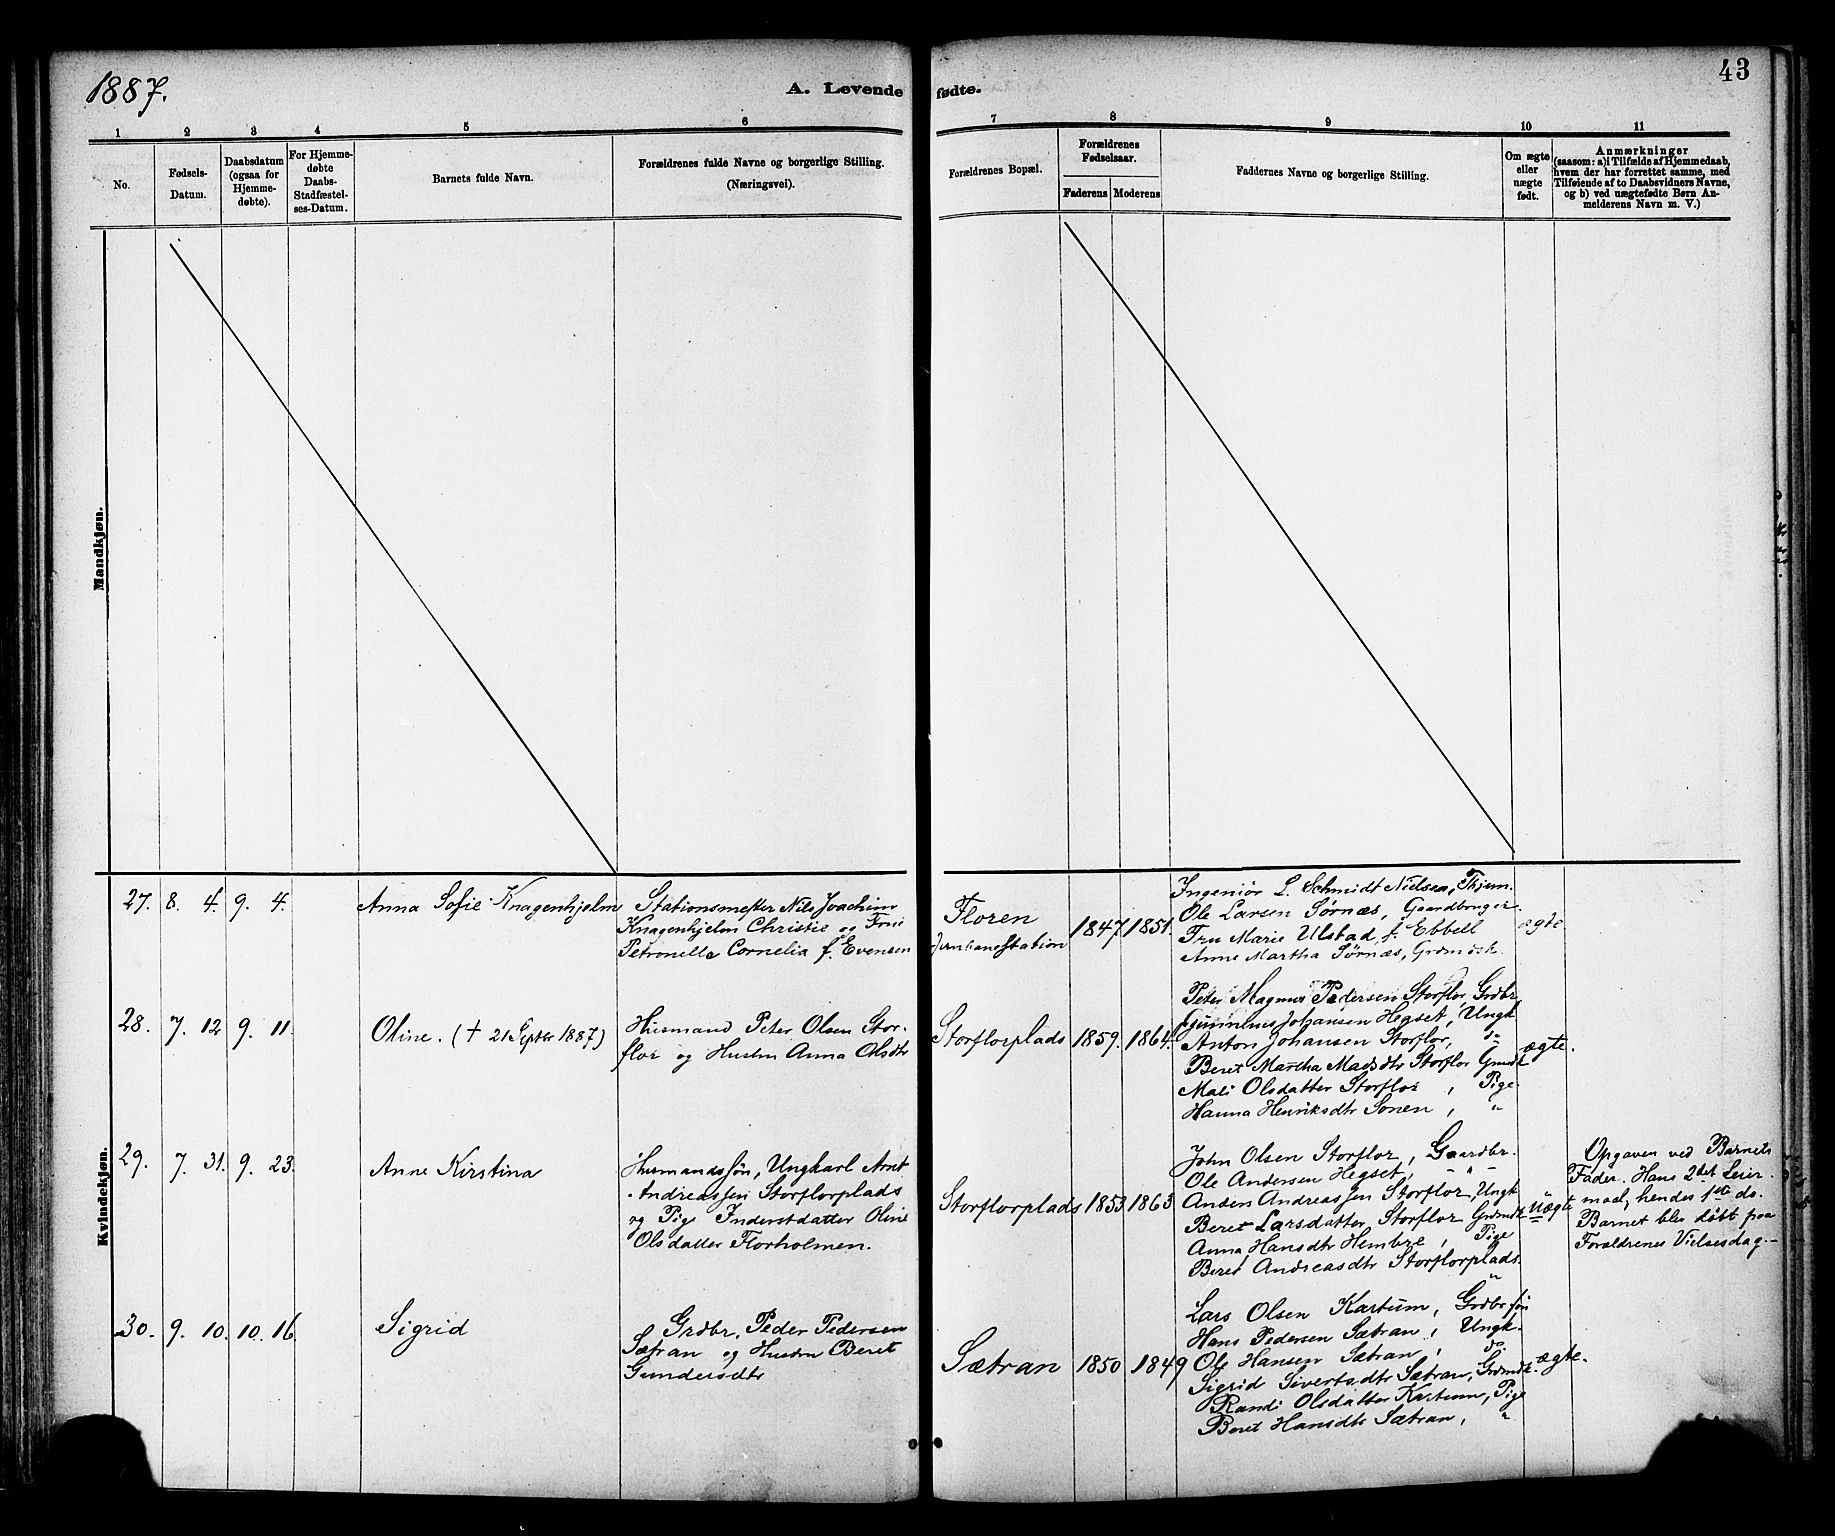 1887.
A. Levende
fødte.
43
1
2
3
4
5
6
7
8
9
10
11
No.
Fødsels-
Datum.
Daabsdatum
(ogsaa for
Hjemme-
døbte).
For Hjemme-
døbte
Daabs-
Stadfæstel-
ses-Datum.
Barnets fulde Navn.
Forældrenes fulde Navne og borgerlige Stilling.
(Næringsvei).
Forældrenes Bopæl.
Forældrenes
Fødselsaar.
Faderens
Moderens
Faddernes Navne og borgerlige Stilling.
Om ægte
eller
uægte
født.
Anmærkninger
(saasom: a) i Tilfælde af Hjemmedaab,
hvem der har forrettet samme, med
Tilføiende af to Daabsvidners Navne,
og b) ved uægtefødte Børn An-
melderens Navn m. V.)
Mandkjøn.
Kvindekjøn.
27. 8. 4. 9. 4.
Anna Sofie Knagenhjelm
Stationsmester Nils Joachim
Knagenhjelm Christie og Frue
Petronelle Cornelia f. Evensen
Floren
Jernbanestation
1847 1851.
Ingeniør L. Schmidt Nielsen, Thjem.
Ole Larsen Sørnæs, Gaardbruger.
Fru Marie Ulstad f. Ebbell
Anne Martha Sørnæs, Grdmdsk.
ægte
28. 7. 12 9. 11.
Oline. († 21 Septbr 1887)
Husmand Peter Olsen Stor-
flor og Hustru Anna Olsdtr
Storflorplads 1859. 1864.
Peter Magnus Pedersen Storflor, Grdbr
Johansen Hegset, Ungk
Anton Johansen Storflor, do
Beret Martha Madsdtr Storflor Grmdk
Mali Olsdatter Storflor, Pige
Hanna Henriksdtr Sonen, "
ægte.
29. 7. 31. 9. 23.
Anne Kirstina
Husmandssøn, Ungkarl Arnt
Andreassen Storflorplads
og Pige Inderstdatter Oline
Olsdatter Florholmen.
Storflorplads 1853 1863
John Olsen Storflor, Gaardbr.
Ole Andersen Hegset, " -
Anders Andreassen Storflor, Ungk
Beret Larsdatter Storflor Grdmdk
Anna Hansdtr Hembre, Pige
Beret Andreasdtr Storflorplads. "
Uægte
Opgaven ved Barnets
Fader. Hans 2det Leier-
maal, hendes 1ste do.
Barnet blev døbt paa
Forældrenes Vielsesdag.
30. 9. 10. 10. 16
Sigrid
Grdbr. Peder Pedersen
Sætran og Hustru Beret
Gundersdtr
Sætran 1850 1849
Lars Olsen Kartum, Grdbr søn
Hans Pedersen Sætran, Ungk.
Ole Hansen Sætran, do
Sigrid Sivertsdtr Sætran, Grdmdk.
Randi Olsdatter Kartum, Pige
Beret Hansdtr Sætran, "
ægte.